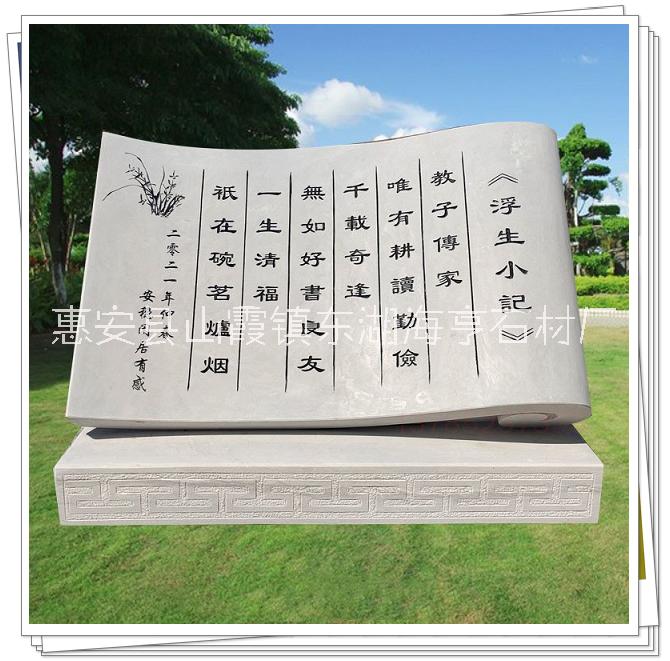 《浮生小記》
教子傳家
唯有耕讀勤儉
千載奇逢
無如好書良友
一生清福
祇在碗茗爐烟
二零二一年仲春
居有感
惠安县山霞镇东湖海亨石材厂